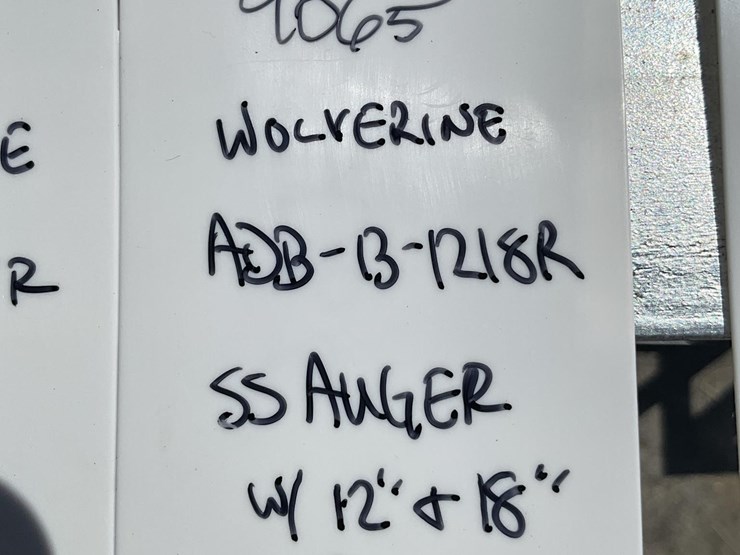 9065
WOLVERINE
E
ADB-13-1218R
R
SS AUGER
W/ 12" & 18"